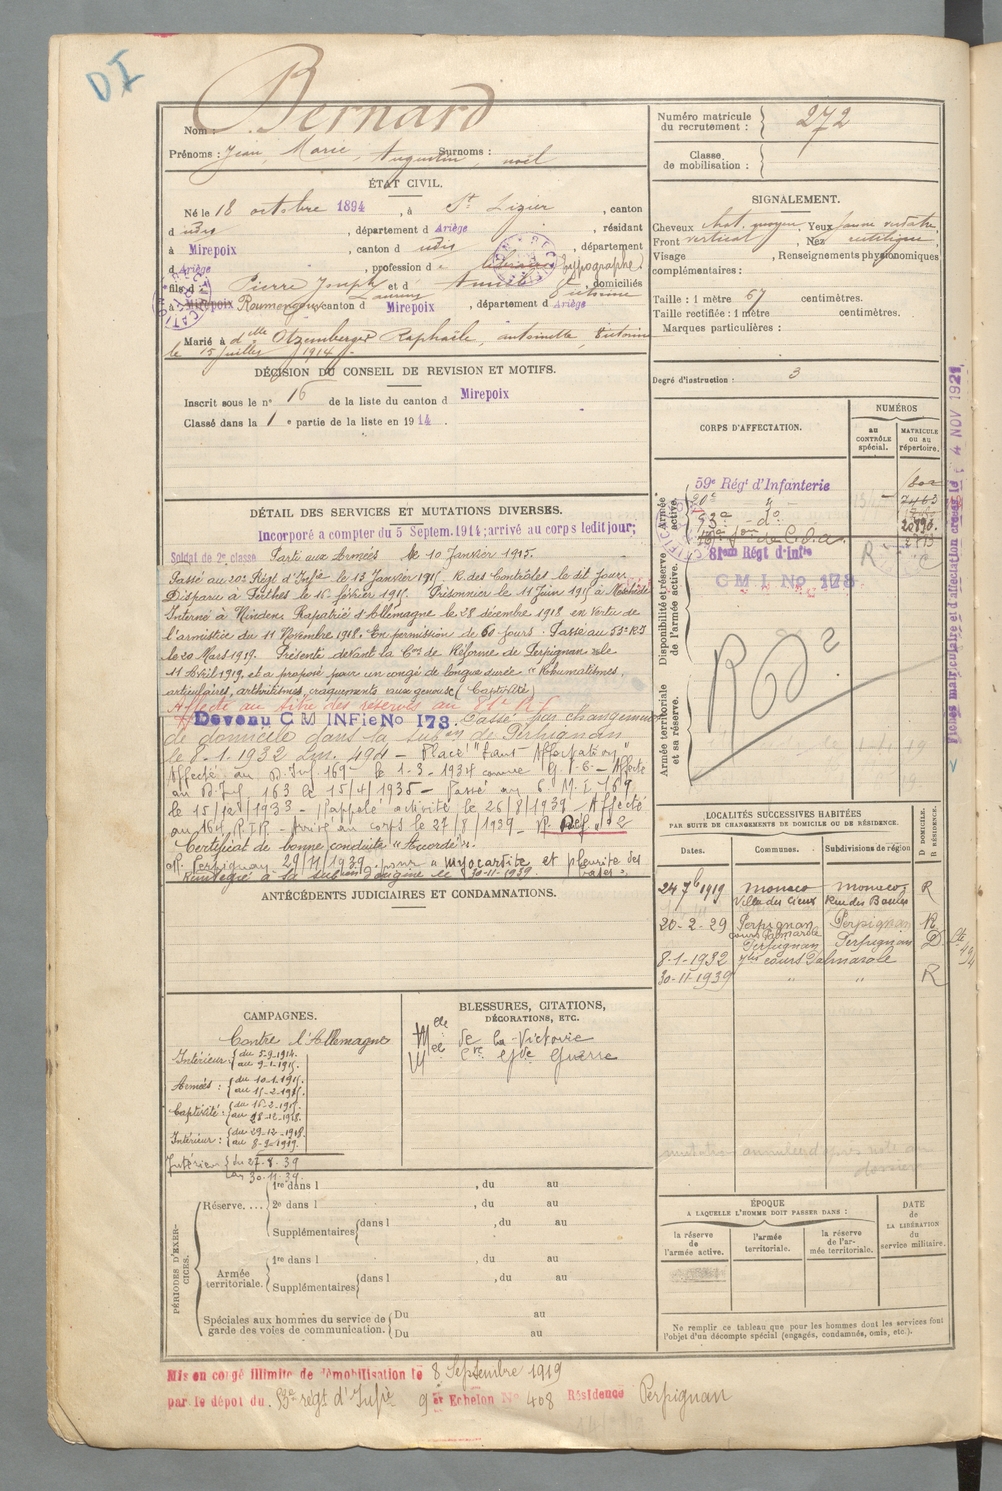 DI
Nom : Bernard
Prénoms : Jean, Marie, Augustin, noël Surnoms :
ÉTAT CIVIL.
Né le 18 octobre 1894, à St Lizier, canton
d udis, département d Ariège, résidant
à Mirepoix, canton d udis, département
d Ariège, profession de typographe
fils d Pierre Joseph et d domiciliés
à Mirepoix Roumengoux canton d Mirepoix, département d Ariège
Marié à dlle Otzemberger Raphaële, antoinette,
le 15 juillet 1914.
DÉCISION DU CONSEIL DE REVISION ET MOTIFS.
Inscrit sous le n° 16 de la liste du canton d Mirepoix
Classé dans la 1 e partie de la liste en 1914.
DÉTAIL DES SERVICES ET MUTATIONS DIVERSES.
Incorporé à compter du 5 Septem. 1914; arrivé au corps ledit jour;
Soldat de 2e classe Parti aux Armées le 10 Janvier 1915.
Passé au 20e Régt d'Infie le 13 Janvier 1915. R. des Contrôles le dit jour
Disparu à Perthes le 16 février 1915. Prisonnier le 11 Juin 1915 à
Interné à Minden. Rapatrié d'Allemagne le 28 décembre 1918 en vertu de
l'armistice du 11 Novembre 1918. En permission de 60 jours. Passé au 53e R.I
le 20 Mars 1919. Présenté devant la Con de Réforme de Perpignan le
11 Avril 1919, et a proposé pour un congé de longue durée "Rhumatismes
articulaires, arthritismes, craquements aux genoux (Captivité)
Affecté au titre des réserves au 81e R.I.
Devenu C M INFie No 173. Passé par changement
de domicile dans la subon de Perpignan
le 8-1-1932 Lm. 494 - Placé "Sans Affectation"
Affecté au D. Inf. 169 le 1-3-1934 comme G.V.C. - Affecté
au D. Inf. 163 le 15/4/1935 - Passé au C.M.I. 169
le 15/12/1933 - Rappelé activité le 26/8/1939 - Affecté
au 164 R.I.R. - Arrivé au corps le 27/8/1939 - Réf. n° 2
Certificat de bonne conduite "Accordé".
Perpignan 29/11/1939 pour "myocardite et pleurite des bases".
Réintégré à la subon d'origine le 30-11-1939.
ANTÉCÉDENTS JUDICIAIRES ET CONDAMNATIONS.
CAMPAGNES.
Contre l'Allemagne
Intérieur { du 5-9-1914. au 9-1-1915.
Armées : { du 10-1-1915. au 15-2-1915.
Captivité : { du 16-2-1915. au 28-12-1918.
Intérieur : { du 29-12-1918. au 8-9-1919.
Intérieur { du 27-8-39 au 30-11-39.
BLESSURES, CITATIONS,
DÉCORATIONS, ETC.
Mlle de la Victoire
Mlle Cve Gde Guerre
PÉRIODES D'EXERCICES.
Réserve.... 1re dans l , du au
2e dans l , du au
Supplémentaires { dans l , du au
Armée territoriale. 1re dans l , du au
Supplémentaires { dans l , du au
Spéciales aux hommes du service de garde des voies de communication. { Du au
Du au
Mis en congé illimité de démobilisation le 8 Septembre 1919
par le dépot du 53e régt d'Infie 9e Echelon No 408 Résidence Perpignan
Numéro matricule du recrutement : 272
Classe de mobilisation :
SIGNALEMENT.
Cheveux chat. moyen, Yeux jaune verdâtre,
Front vertical, Nez rectiligne,
Visage , Renseignements physionomiques
complémentaires :
Taille : 1 mètre 67 centimètres.
Taille rectifiée : 1 mètre centimètres.
Marques particulières :
Degré d'instruction : 3
CORPS D'AFFECTATION.
NUMÉROS
au CONTRÔLE spécial.
MATRICULE ou au répertoire.
Armée active.
59e Régt d'Infanterie
20e " "
53e - do -
81eme Régt d'Infie
C M I No 173
Disponibilité et réserve de l'armée active.
Armée territoriale et sa réserve.
Fiches matriculaire et d'affectation créées le : 4 NOV 1921
LOCALITÉS SUCCESSIVES HABITÉES
PAR SUITE DE CHANGEMENTS DE DOMICILE OU DE RÉSIDENCE.
Dates. Communes. Subdivisions de région D DOMICILE. R RÉSIDENCE.
24 7b 1919 Monaco Monaco, R
Villa des Cieux Rue des Boules
20-2-29 Perpignan Perpignan R
8-1-1932 Perpignan Perpignan D
cours Palmarole
30-11-1939 " " R
mutation annulée d'après note au dossier
ÉPOQUE
A LAQUELLE L'HOMME DOIT PASSER DANS :
la réserve de l'armée active.
l'armée territoriale.
la réserve de l'armée territoriale.
DATE de LA LIBÉRATION du service militaire.
Ne remplir ce tableau que pour les hommes dont les services font
l'objet d'un décompte spécial (engagés, condamnés, omis, etc.).